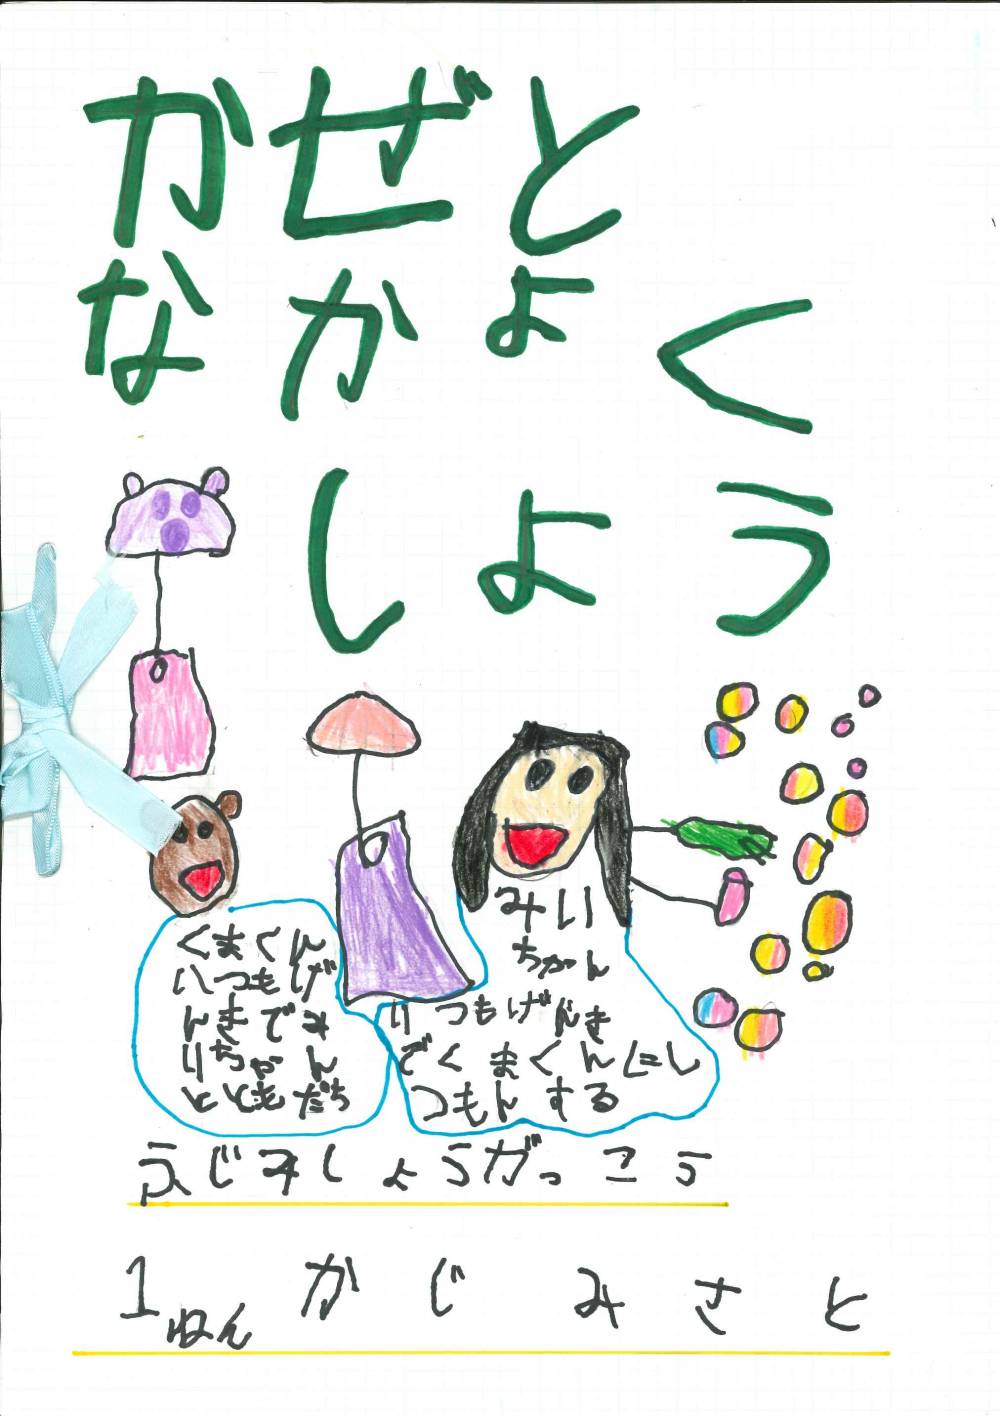 かぜと
なかよく
しよう
くまくん
いつもげ
んきでみ
いちゃん
とともだち
みい
ちゃん
いつもげんき
でくまくんにし
つもんする
ふじみしょうがっこう
1ねん かじ みさと